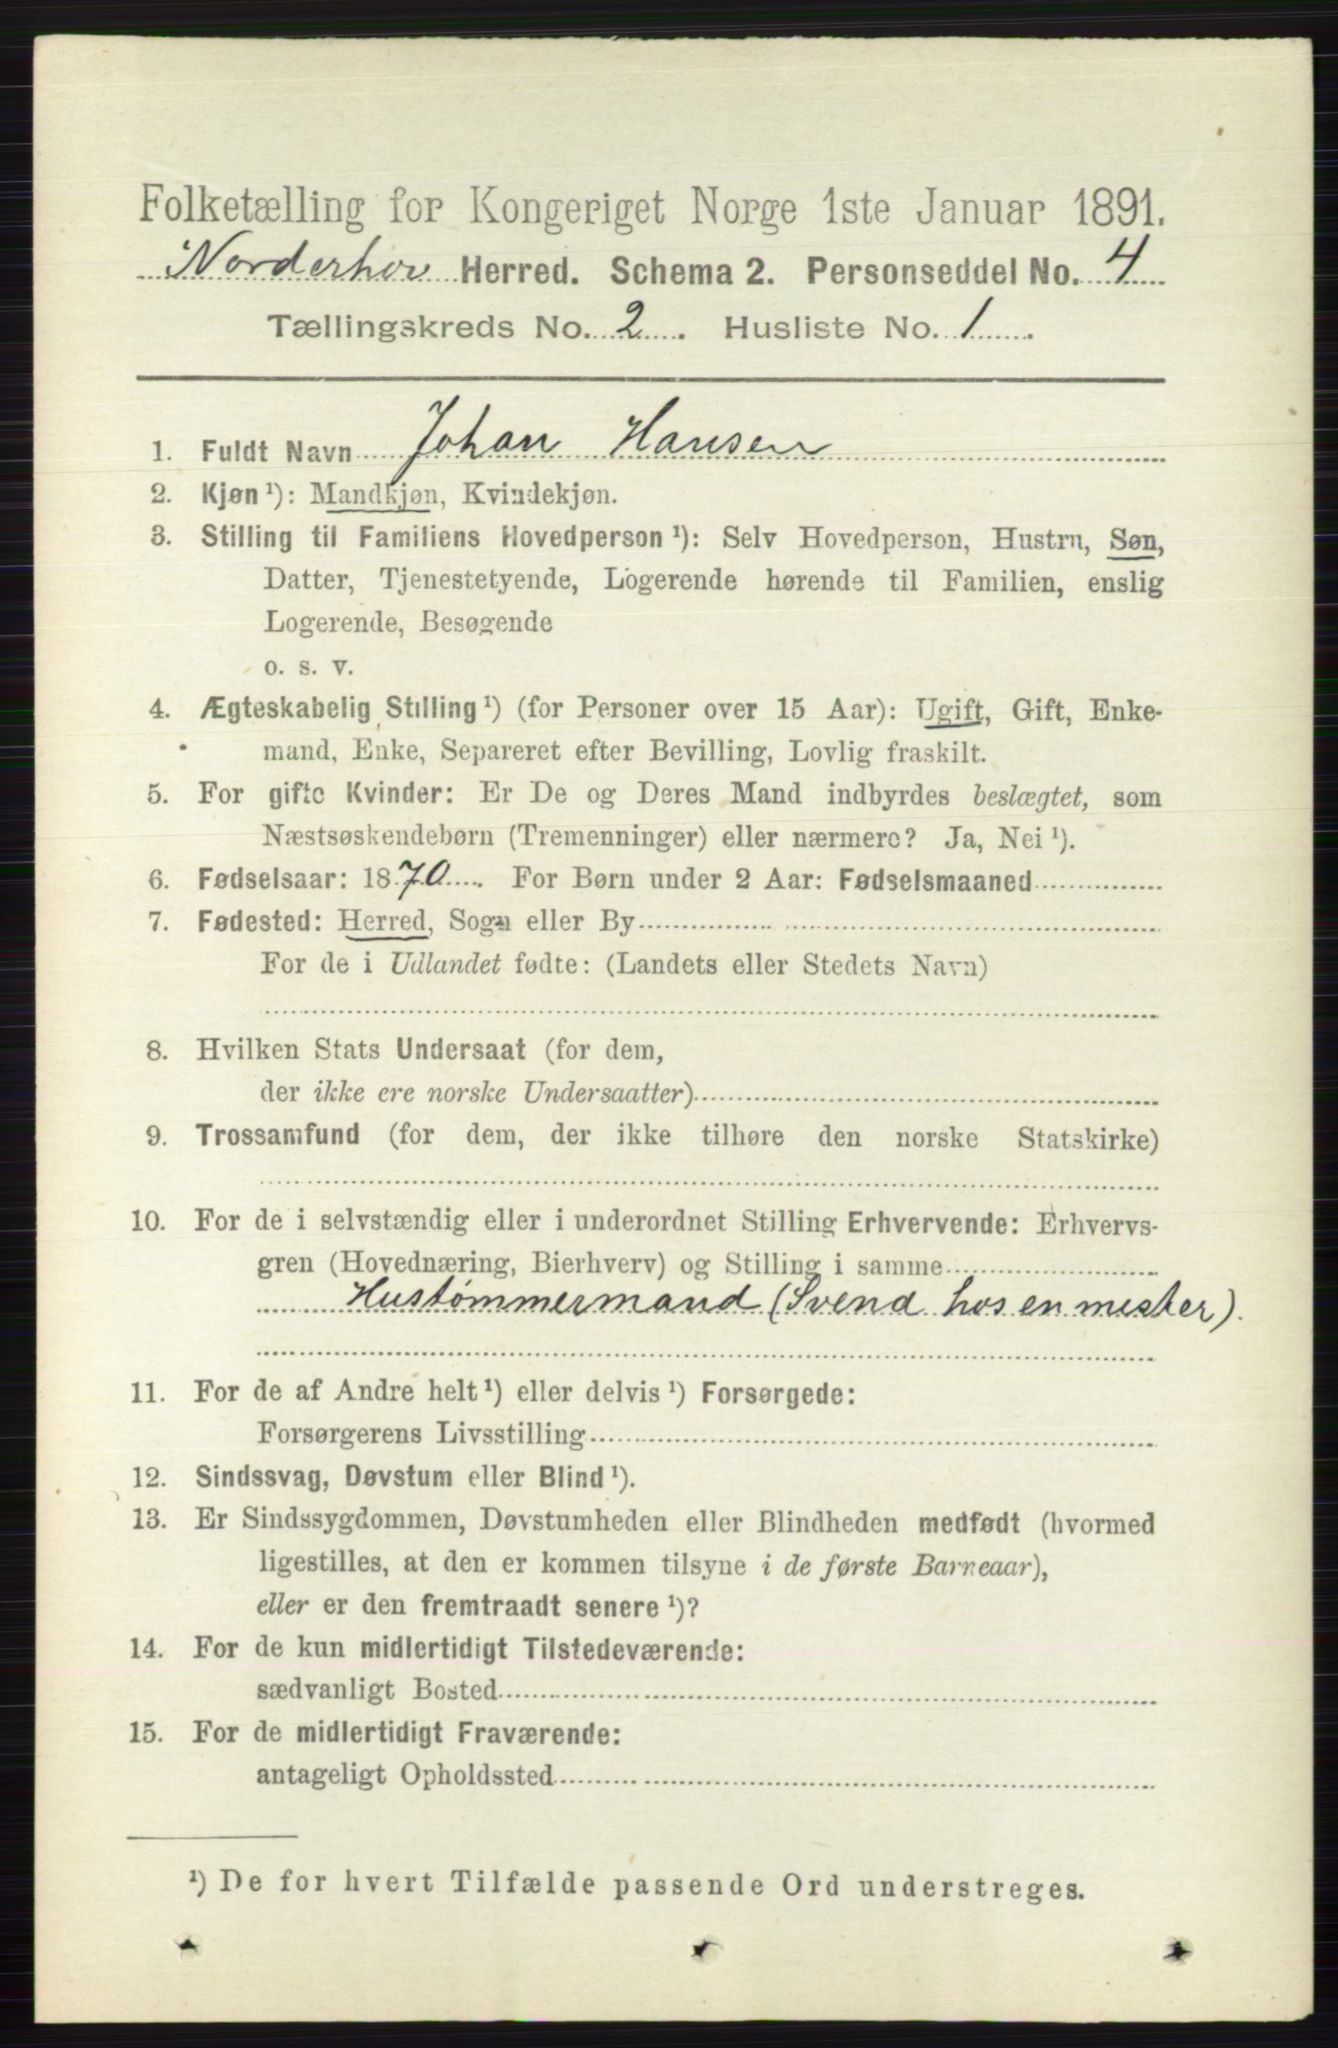 Folketælling for Kongeriget Norge 1ste Januar 1891.
Norderhov Herred. Schema 2. Personseddel No. 4
Tællingskreds No. 2. Husliste No. 1.
1. Fuldt Navn Johan Hansen
2. Kjøn¹): Mandkjøn, Kvindekjøn.
3. Stilling til Familiens Hovedperson¹): Selv Hovedperson, Hustru, Søn,
Datter, Tjenestetyende, Logerende hørende til Familien, enslig
Logerende, Besøgende
o. s. v.
4. Ægteskabelig Stilling¹) (for Personer over 15 Aar): Ugift, Gift, Enke-
mand, Enke, Separeret efter Bevilling, Lovlig fraskilt.
5. For gifte Kvinder: Er De og Deres Mand indbyrdes beslægtet, som
Næstsøskendebørn (Tremenninger) eller nærmere? Ja, Nei¹).
6. Fødselsaar: 1870. For Børn under 2 Aar: Fødselsmaaned
7. Fødested: Herred, Sogn eller By
For de i Udlandet fødte: (Landets eller Stedets Navn)
8. Hvilken Stats Undersaat (for dem,
der ikke ere norske Undersaatter)
9. Trossamfund (for dem, der ikke tilhøre den norske Statskirke)
10. For de i selvstændig eller i underordnet Stilling Erhvervende: Erhvervs-
gren (Hovednæring, Bierhverv) og Stilling i samme
Hustømmermand (Svend hos en mester).
11. For de af Andre helt¹) eller delvis¹) Forsørgede:
Forsørgerens Livsstilling
12. Sindssvag, Døvstum eller Blind¹).
13. Er Sindssygdommen, Døvstumheden eller Blindheden medfødt (hvormed
ligestilles, at den er kommen tilsyne i de første Barneaar),
eller er den fremtraadt senere¹)?
14. For de kun midlertidigt Tilstedeværende:
sædvanligt Bosted
15. For de midlertidigt Fraværende:
antageligt Opholdssted
¹) De for hvert Tilfælde passende Ord understreges.